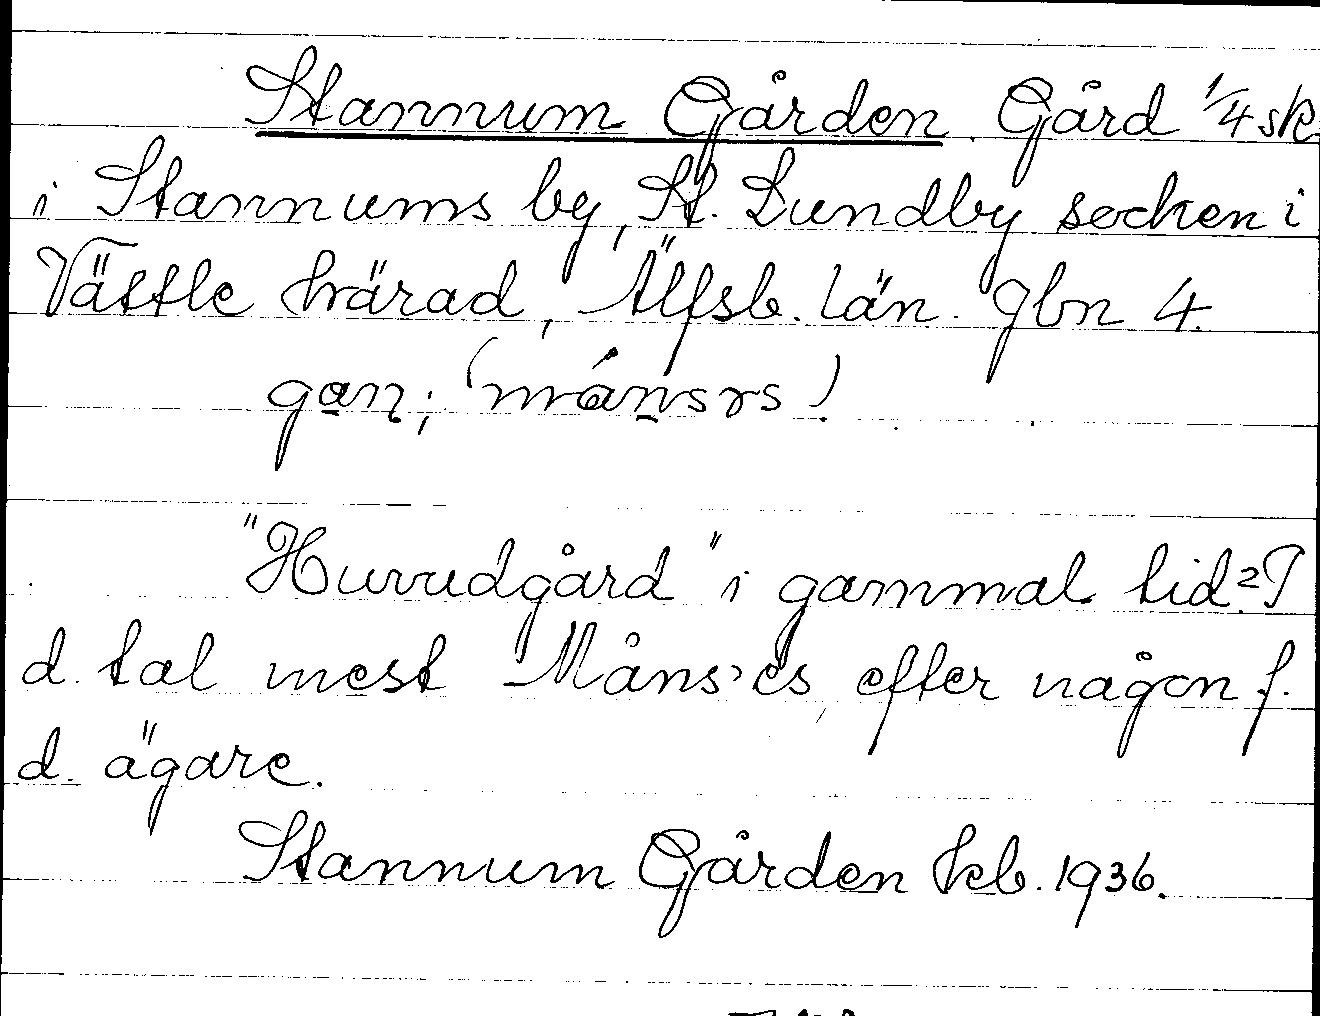 Stannum Gården. Gård 1/4 sk.
i Stannums by, St. Lundby socken i
Vättle härad, Älfsb. län. Jbn 4.
gan; (mánsrs)
"Huvudgård" i gammal tid? I
d. tal mest Måns'es, efter någon f.
d. ägare.
Stannum Gården kb. 1936.